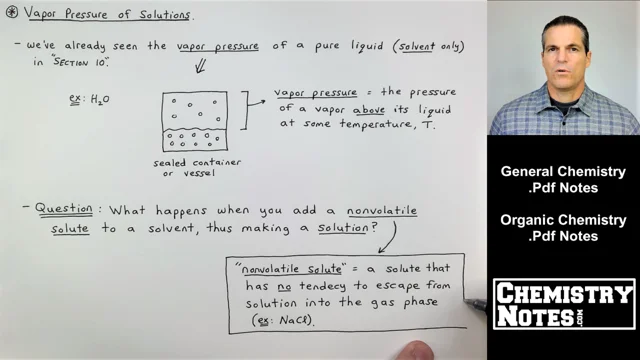 ⊛ Vapor Pressure of Solutions.
- we've already seen the vapor pressure of a pure liquid (solvent only)
in "SECTION 10".
ex: H2O
vapor pressure = the pressure
of a vapor above its liquid
at some temperature, T.
sealed container
or vessel
- Question: What happens when you add a nonvolatile
solute to a solvent, thus making a solution?
"nonvolatile solute" = a solute that
has no tendecy to escape from
solution into the gas phase
(ex: NaCl).
General Chemistry
.Pdf Notes
Organic Chemistry
.Pdf Notes
CHEMISTRY
NOTES.COM